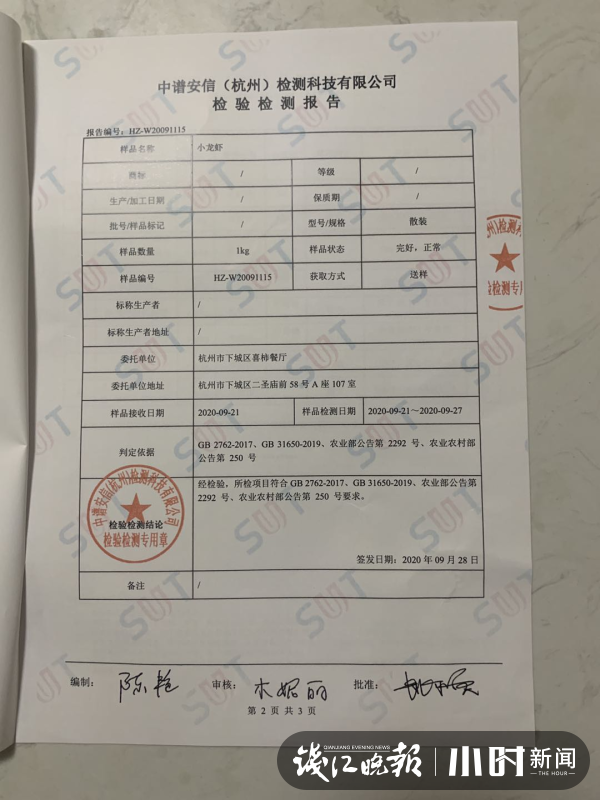 中谱安信（杭州）检测科技有限公司
检 验 检 测 报 告
报告编号：HZ-W20091115
样品名称 小龙虾
商标 / 等级 /
生产/加工日期 / 保质期 /
批号/样品标记 / 型号/规格 散装
样品数量 1kg 样品状态 完好，正常
样品编号 HZ-W20091115 获取方式 送样
标称生产者 /
标称生产者地址 /
委托单位 杭州市下城区喜柿餐厅
委托单位地址 杭州市下城区二圣庙前 58 号 A 座 107 室
样品接收日期 2020-09-21 样品检测日期 2020-09-21～2020-09-27
判定依据 GB 2762-2017、GB 31650-2019、农业部公告第 2292 号、农业农村部
公告第 250 号
经检验，所检项目符合 GB 2762-2017、GB 31650-2019、农业部公告第
2292 号、农业农村部公告第 250 号要求。
中谱安信(杭州)检测科技有限公司
检验检测结论
检验检测专用章
签发日期：2020 年 09 月 28 日
备注 /
州)检测科
检验检测专用
编制： 陈艳 审核： 批准：
第 2 页 共 3 页
SWT
QIANJIANG EVENING NEWS
钱江晚报 小时新闻
THE HOUR